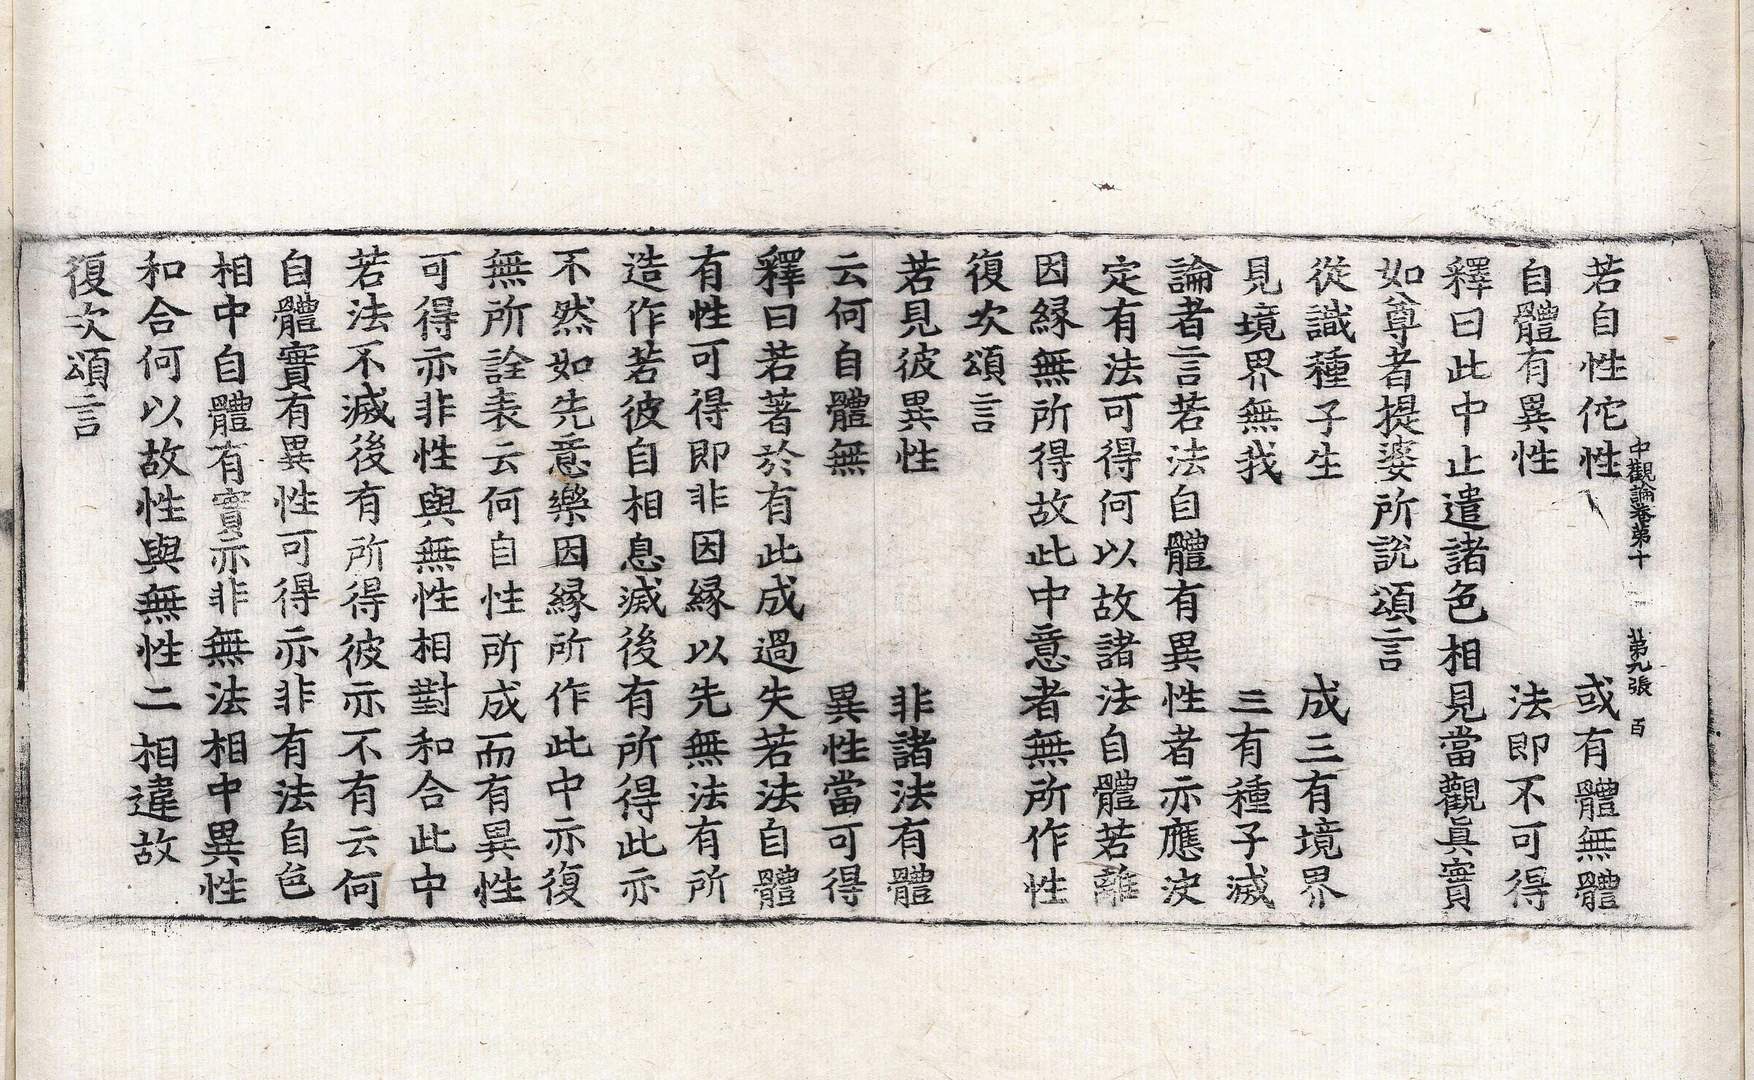 中觀論卷第十 第九張 百
若自性佗性 或有體無體
自體有異性 法即不可得
釋曰此中止遣諸色相見當觀眞實
如尊者提婆所說頌言
從識種子生 成三有境界
見境界無我 三有種子滅
論者言若法自體有異性者亦應決
定有法可得何以故諸法自體若離
因緣無所得故此中意者無所作性
復次頌言
若見彼異性 非諸法有體
云何自體無 異性當可得
釋曰若著於有此成過失若法自體
有性可得即非因緣以先無法有所
造作若彼自相息滅後有所得此亦
不然如先意樂因緣所作此中亦復
無所詮表云何自性所成而有異性
可得亦非性與無性相對和合此中
若法不滅後有所得彼亦不有云何
自體實有異性可得亦非有法自色
相中自體有實亦非無法相中異性
和合何以故性與無性二相違故
復次頌言